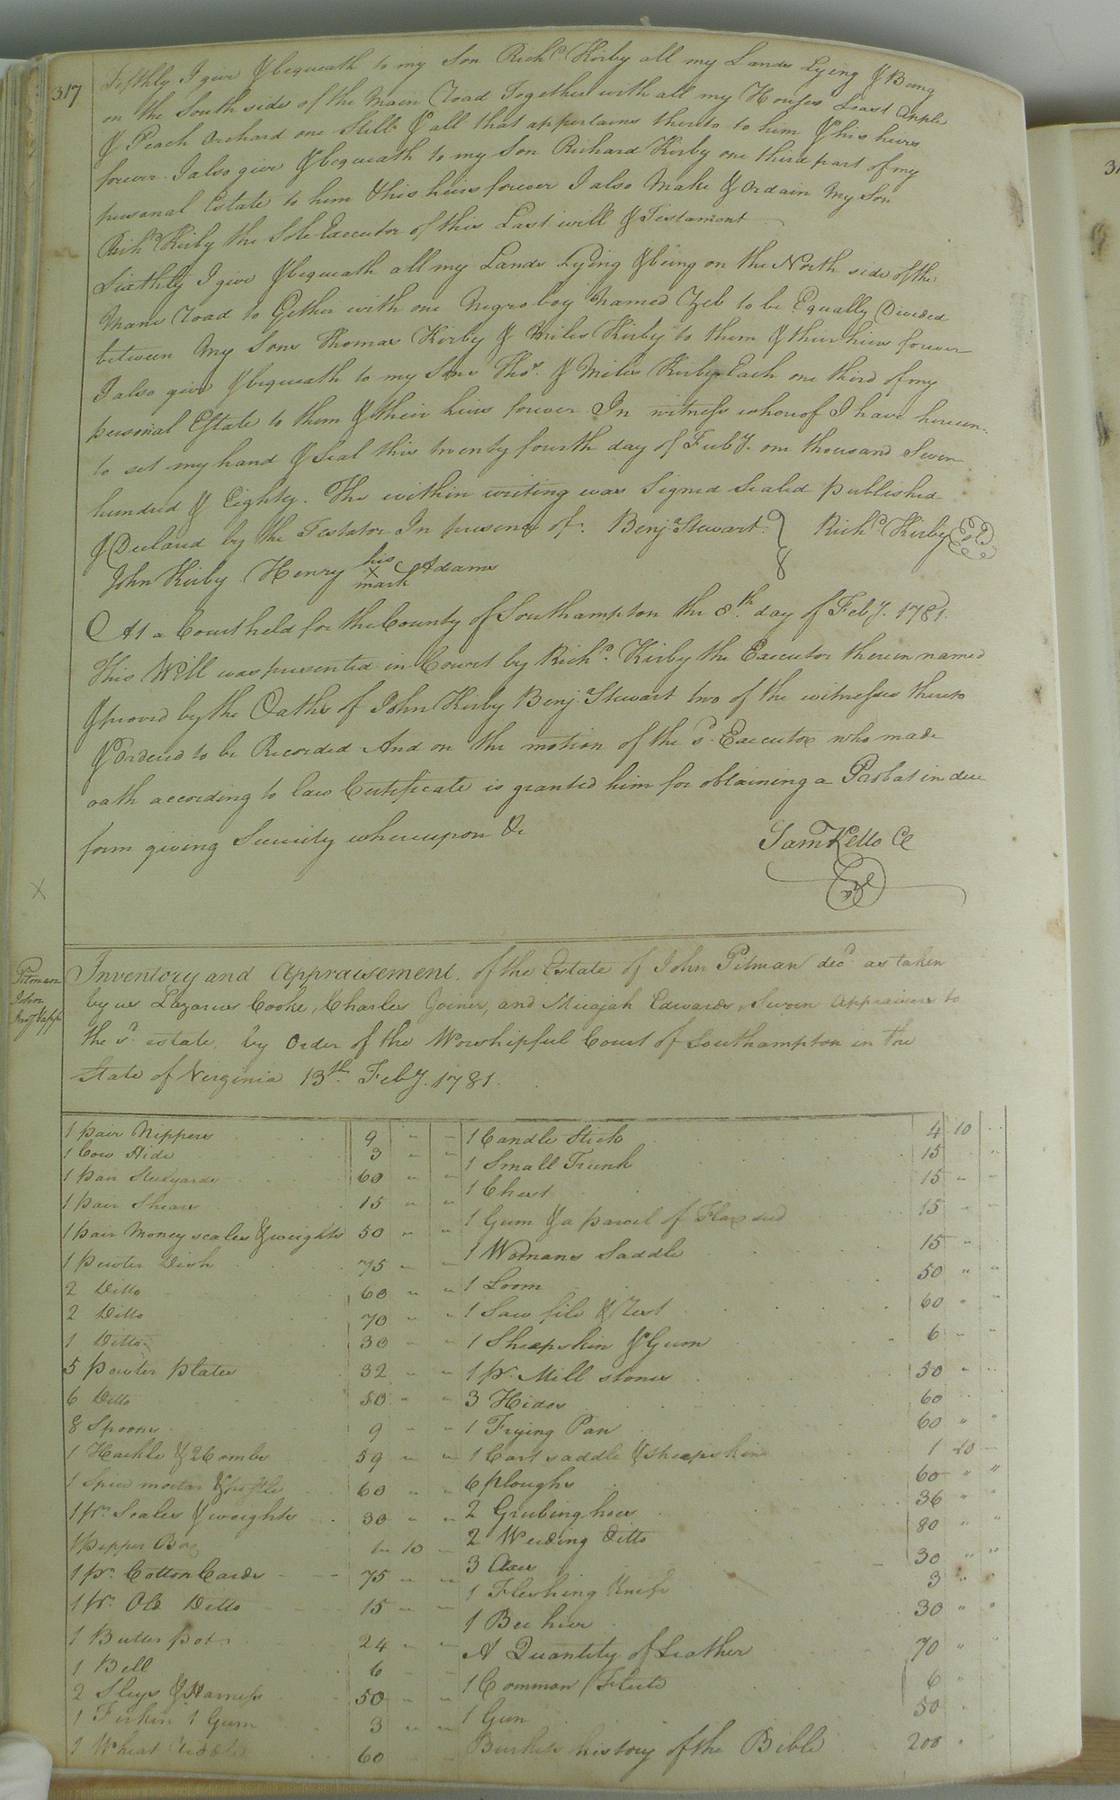 317
Fifthly I give & bequeath to my Son Richd Kirby all my Lands Lying & Being
on the South side of the Main Road Together with all my Houses Least Apple
& Peach Orchard one Still & all that appertains thereto to him & his heirs
forever. I also give & bequeath to my Son Richard Kirby one third part of my
personal Estate to him & his heirs forever I also Make & Ordain My Son
Richd Kirby the Sole Executor of this Last will & Testament
Sixthly I give & bequeath all my Lands Lying & being on the North side of the
Mane Road to Gether with one Negro boy Named Zeb to be Equally Divided
between My Sons Thomas Kirby & Miles Kirby to them & their hiers forever
I also give & bequeath to my Sons Thos. & Miles Kirby Each one third of my
personal Estate to them & their hiers forever In witness whereof I have hereun-
to set my hand & Seal this twenty fourth day of Feby. one thousand Seven
hundred & Eighty. The within writing was Signed Sealed published
& Declared by the Testator In presence of. Benj. Stewart Richd Kirby
John Kirby Henry his x mark Adams
At a Court held for the County of Southampton the 8th day of Feby. 1781.
This Will was presented in Court by Richd. Kirby the Executor therein named
& proved by the Oaths of John Kirby Benj. Stewart two of the witnesses thereto
& Ordered to be Recorded And on the motion of the sd. Executor who made
oath according to law Certificate is granted him for obtaining a Probat in due
form giving Security whereupon &c
Sam Kello CC
Pitman
John
Invy & app
Inventory and Appraisement of the Estate of John Pitman decd as taken
by us Lazarus Cooke, Charles Joiner, and Micajah Edwards, Sworn Appraisers to
the sd. estate, by Order of the Worshipful Court of Southampton in the
State of Verginia 13th. Feby. 1781.
1 pair Nippers 9 " " 1 Candle Stick 4 10 "
1 Cow Hide 3 " " 1 Small Trunk 15 "
1 pair Steelyards 60 " " 1 Chest 15 " "
1 pair Shears 15 " " 1 Gum & a parcel of Flax seed 15 " "
1 pair Money scales & weights 50 " " 1 Womans Saddle 15 "
1 pewter Dish 75 " " 1 Loom 50 " "
2 Ditto 60 " " 1 Saw file & Rest 60 " "
2 Ditto 70 " 1 Sheepskin & Gum 6 " "
1 Ditto 30 " " 1 pr. Mill stones 50 " "
5 pewter plates 32 " " 3 Hides 60
6 Ditto 50 " " 1 Frying Pan 60 " "
8 Spoons 9 " " 1 Cart saddle & sheepskin 1 10
1 Hackle & 2 Combs 59 " " 6 ploughs 60 " "
1 Spice mortar & pestle 60 " " 2 Grubing hoes 36 " "
1 pr. Scales & weights 30 " " 2 Weeding Ditto 80 " "
1 Pepper Box 1 10 3 Axes 30 " "
1 pr. Cotton Cards 75 " " 1 Fleshing Knife 3 " "
1 pr. Old Ditto 15 " " 1 Bee hive 30 " "
1 Butter pot 24 " " A Quantity of Leather 70 " "
1 Bell 6 1 Common 6 "
2 Slays & Harness 50 " " 1 Gun 50 "
1 Firkin 1 Gum 3 " " Burkits history of the Bible 200 "
1 Wheat 60